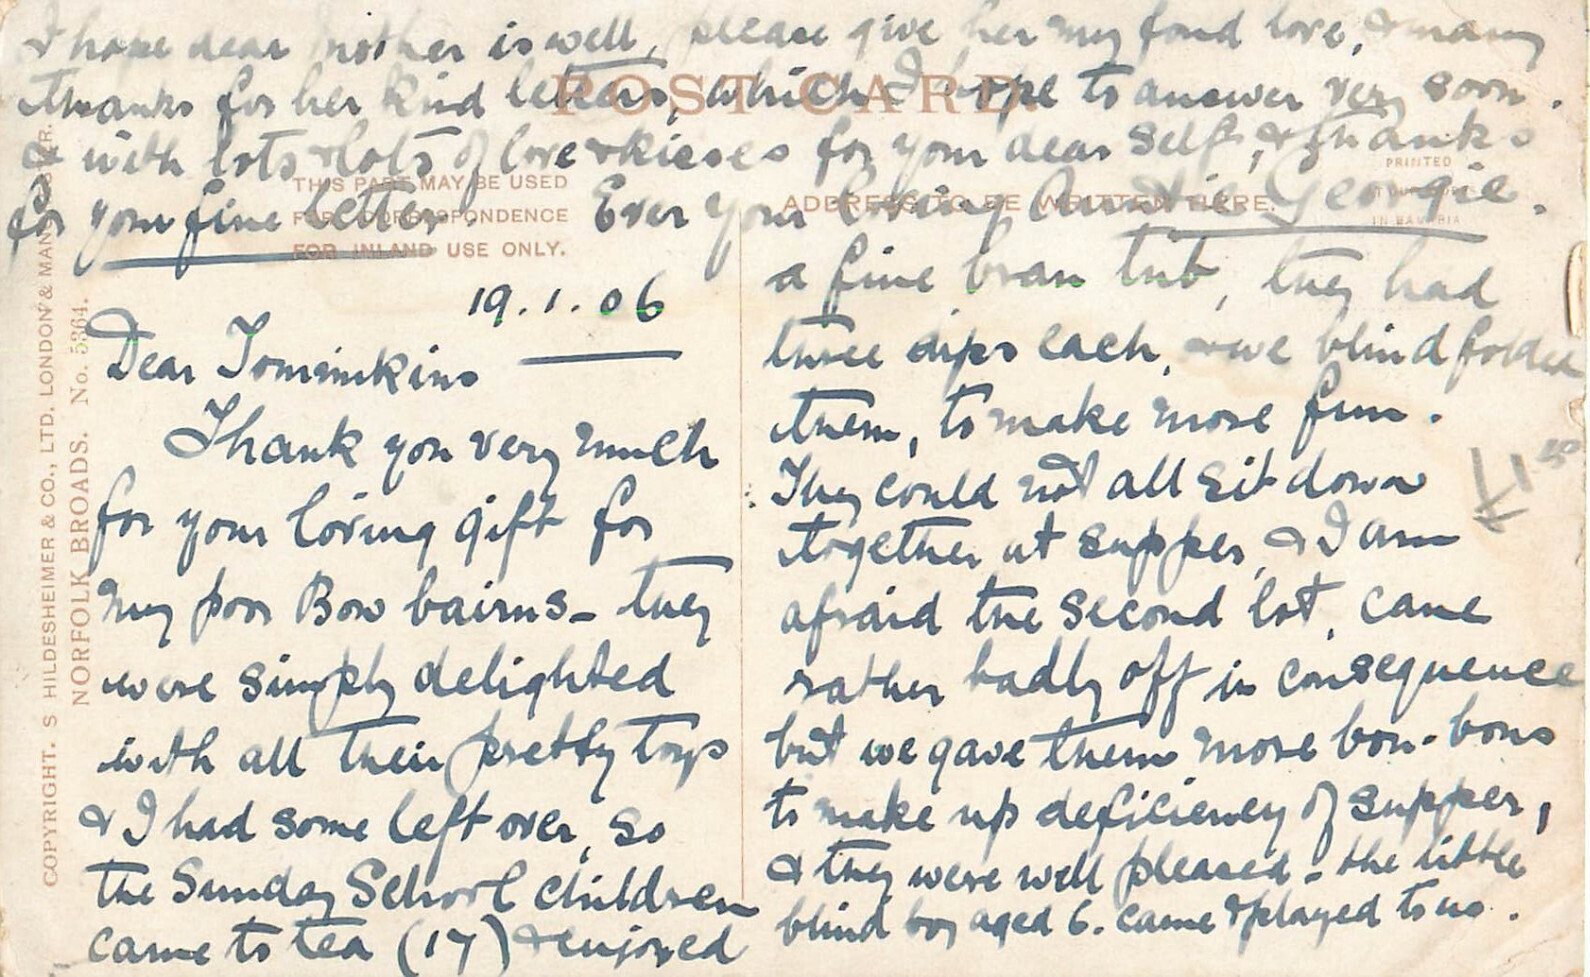 19.1.06
Dear Tommikins
Thank you very much
for your loving gift for
my poor Bow bairns - they
were simply delighted
with all their pretty toys
& I had some left over, so
the Sunday School children
came to tea (17) & enjoyed
a fine bran tub, they had
three dips each, & we blind folded
them, to make more fun.
They could not all sit down
together at supper, & I am
afraid the second lot, came
rather badly off in consequence
but we gave them more bon-bons
to make up deficiency of supper,
& they were well pleased - the little
blind boy aged 6. came & played to us.
I hope dear mother is well, please give her my fond love, & many
thanks for her kind letters, which I hope to answer very soon.
& with lots & lots of love & kisses for your dear self, & thanks
for your fine letter. Ever your loving Auntie Georgie.
POST CARD
THIS PART MAY BE USED
FOR CORRESPONDENCE
FOR INLAND USE ONLY.
ADDRESS TO BE WRITTEN HERE.
PRINTED
IN BAVARIA
COPYRIGHT. S HILDESHEIMER & CO., LTD. LONDON & MANCHESTER.
NORFOLK BROADS. No. 5364.